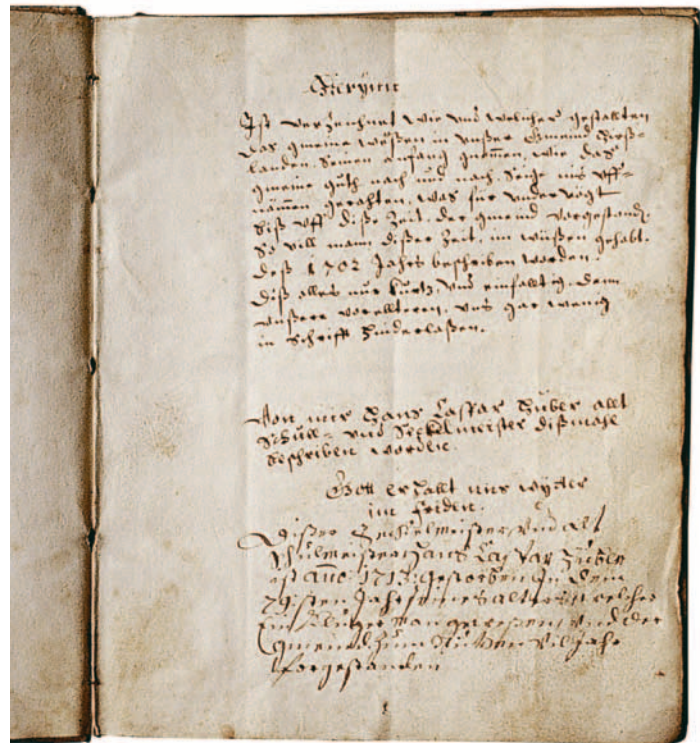 Hierinn
Ist verzeichnet wie und welicher gestallten
das gmeine wëßen in unßer Gmeind Hirß-
landen, seinen anfang gnom̄en, wie das
gmeine guth nach und nach seige uns uff-
näm̄en gerahten, was für undervögt
biß uff diße Zeit, der gmeind vorgestandē.
So vill mann dißer Zeit, im wüßen gehabt.
deß 1702 Jahrs beschriben worden.
Diß alles nur kurtz, und einfalltig. denn
unßere vorellteren, uns gar wenig
in Schrifft hinderlaßen.
Von mir Hans Casspar Huber allt
Schull- und Seckelmeister dißmahl
beschriben worden.
Gott erhallt uns wyter
im friden.
Dißer Seckelmeister und alt
schulmeister Hans Caspar Huber
ist anno 1713: gestorben In dem
79isten Jahr seines alters welcher
Ein kluger man geweßen, und der
gmeind zum Nutzen vil Jahr
forgestanden
1